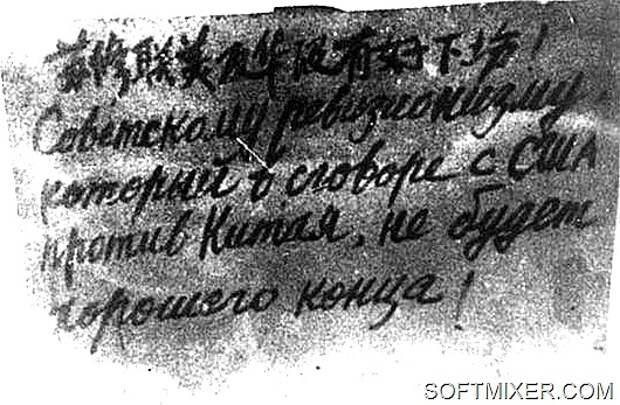 苏修联美反华没有好下场!
Советскому ревизионизму
который в сговоре с США
против Китая, не будет
хорошего конца!
SOFTMIXER.COM